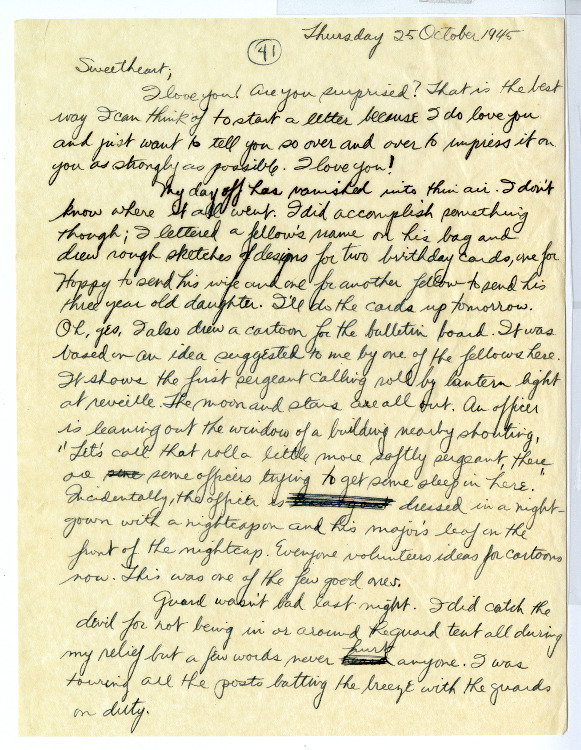 Thursday 25 October 1945
41
Sweetheart;
I love you! Are you surprised? That is the best
way I can think of to start a letter because I do love you
and just want to tell you so over and over to impress it on
you as strongly as possible. I love you!
My day off has vanished into thin air. I don't
know where it all went. I did accomplish something
though; I lettered a fellow's name on his bag and
drew rough sketches of designs for two birthday cards, one for
Hoppy to send his wife and one for another fellow to send his
three year old daughter. I'll do the cards up tomorrow.
Oh, yes, I also drew a cartoon for the bulletin board. It was
based on an idea suggested to me by one of the fellows here.
It shows the first sergeant calling role by lantern light
at reveille. The moon and stars are all out. An officer
is leaning out the window of a building nearby shouting,
"Let's call that roll a little more softly sergeant, there
are some officers trying to get some sleep in here."
Incidentally, the officer is dressed in a night-
gown with a nightcap on and his major's leaf on the
front of the nightcap. Everyone volunteers ideas for cartoons
now. This was one of the few good ones.
Guard wasn't bad last night. I did catch the
devil for not being in or around the guard tent all during
my relief but a few words never hurt anyone. I was
touring all the posts batting the breeze with the guards
on duty.